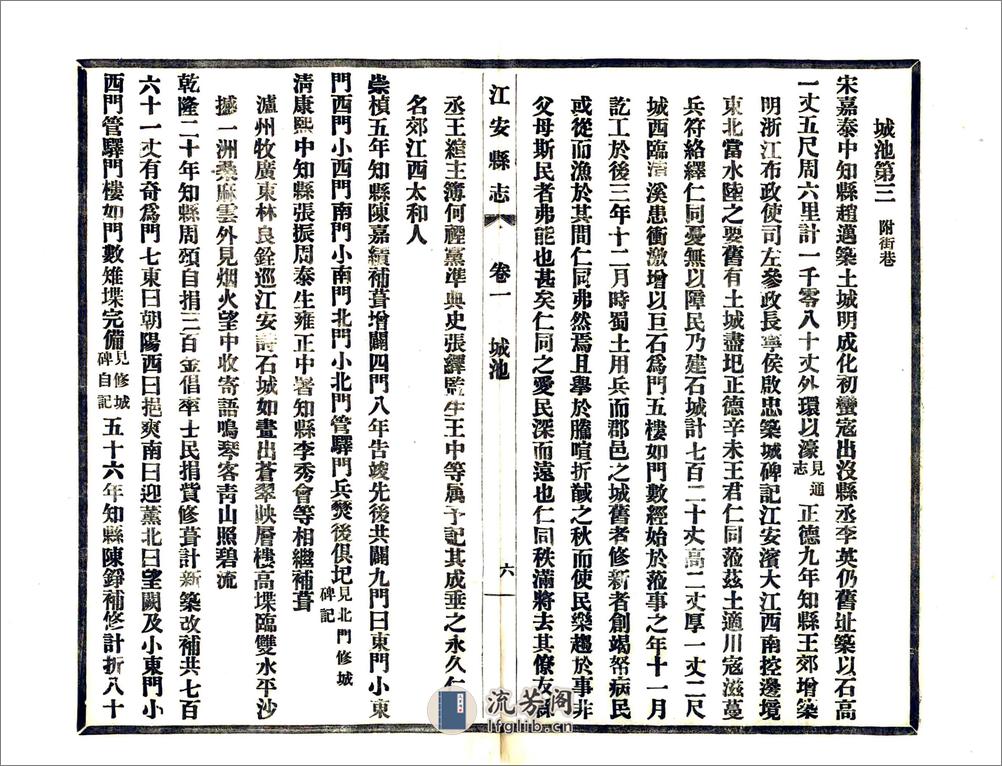 城池第三 附街巷
宋嘉泰中知縣趙邁築土城明成化初蠻寇出沒縣丞李英仍舊址築以石高
一丈五尺周六里計一千零八十丈外環以濠見通志 正德九年知縣王郊增築
明浙江布政使司左參政長寧侯啟忠築城碑記江安濱大江西南控邊境
東北當水陸之要舊有土城盡圯正德辛未王君仁同蒞茲土適川寇滋蔓
兵符絡繹仁同憂無以障民乃建石城計七百二十丈高二丈厚一丈二尺
城西臨淯溪患衝激增以巨石為門五樓如門數經始於蒞事之年十一月
訖工於後三年十二月時蜀土用兵而郡邑之城舊者修新者創竭帑病民
或從而漁於其間仁同弗然焉且舉於騰喧折馘之秋而使民樂趨於事非
父母斯民者弗能也甚矣仁同之愛民深而遠也仁同秩滿將去其僚友
江安縣志 卷一 城池 六
丞王縉主簿何禋黨準典史張繹監生王中等属予記其成垂之永久仁
名郊江西太和人
崇楨五年知縣陳嘉績補葺增闢四門八年告竣先後共闢九門曰東門小東
門西門小西門南門小南門北門小北門管驛門兵燹後俱圯見北門修城碑記
清康熙中知縣張振周泰生雍正中署知縣李秀會等相繼補葺
瀘州牧廣東林良銓巡江安詩石城如畫出蒼翠映層樓高堞臨雙水平沙
擁一洲桑麻雲外見烟火望中收寄語鳴琴客靑山照碧流
乾隆二十年知縣周頌自捐三百金倡率士民捐貲修葺計新築改補共七百
六十一丈有奇為門七東曰朝陽西曰挹爽南曰迎薰北曰望闕及小東門小
西門管驛門樓如門數雉堞完備見修城碑自記 五十六年知縣陳錚補修計折八十
流芳阁
lfglib.cn